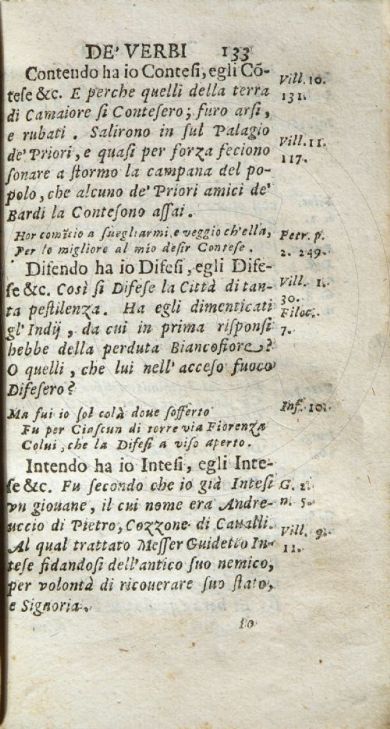 DE' VERBI 133
Contendo ha io Contesi, egli Cõ-
tese &c. E perche quelli della terra
di Camaiore si Contesero; furo arsi,
e rubati. Salirono in sul Palagio
de' Priori, e quasi per forza feciono
sonare a stormo la campana del po-
polo, che alcuno de' Priori amici de'
Bardi la Contesono assai.
Hor comĩcio a suegliarmi, e veggio ch'ella,
Per lo migliore al mio desir Contese.
Difendo ha io Difesi, egli Dife-
se &c. Così si Difese la Città di tan-
ta pestilenza. Ha egli dimenticati
gl' Indij, da cui in prima risponsi
hebbe della perduta Biancofiore?
O quelli, che lui nell' acceso fuoco
Difesero?
Ma fui io sol colà doue sofferto
Fu per Ciascun di torre via Fiorenza
Colui, che la Difesi a viso aperto.
Intendo ha io Intesi, egli Inte-
se &c. Fu secondo che io già Intesi
vn giouane, il cui nome era Andre-
uccio di Pietro, Cozzone di Caualli.
Al qual trattato Messer Guidetto In-
tese fidandosi dell'antico suo nemico,
per volontà di ricouerare suo stato,
e Signoria.
Io
Vill. 10.
131.
Vill. 11.
117.
Petr. p.
2. 249.
Vill. 1.
30.
Filoc.
7.
Inf. 10.
G. 2.
n. 5.
Vill. 9.
12.